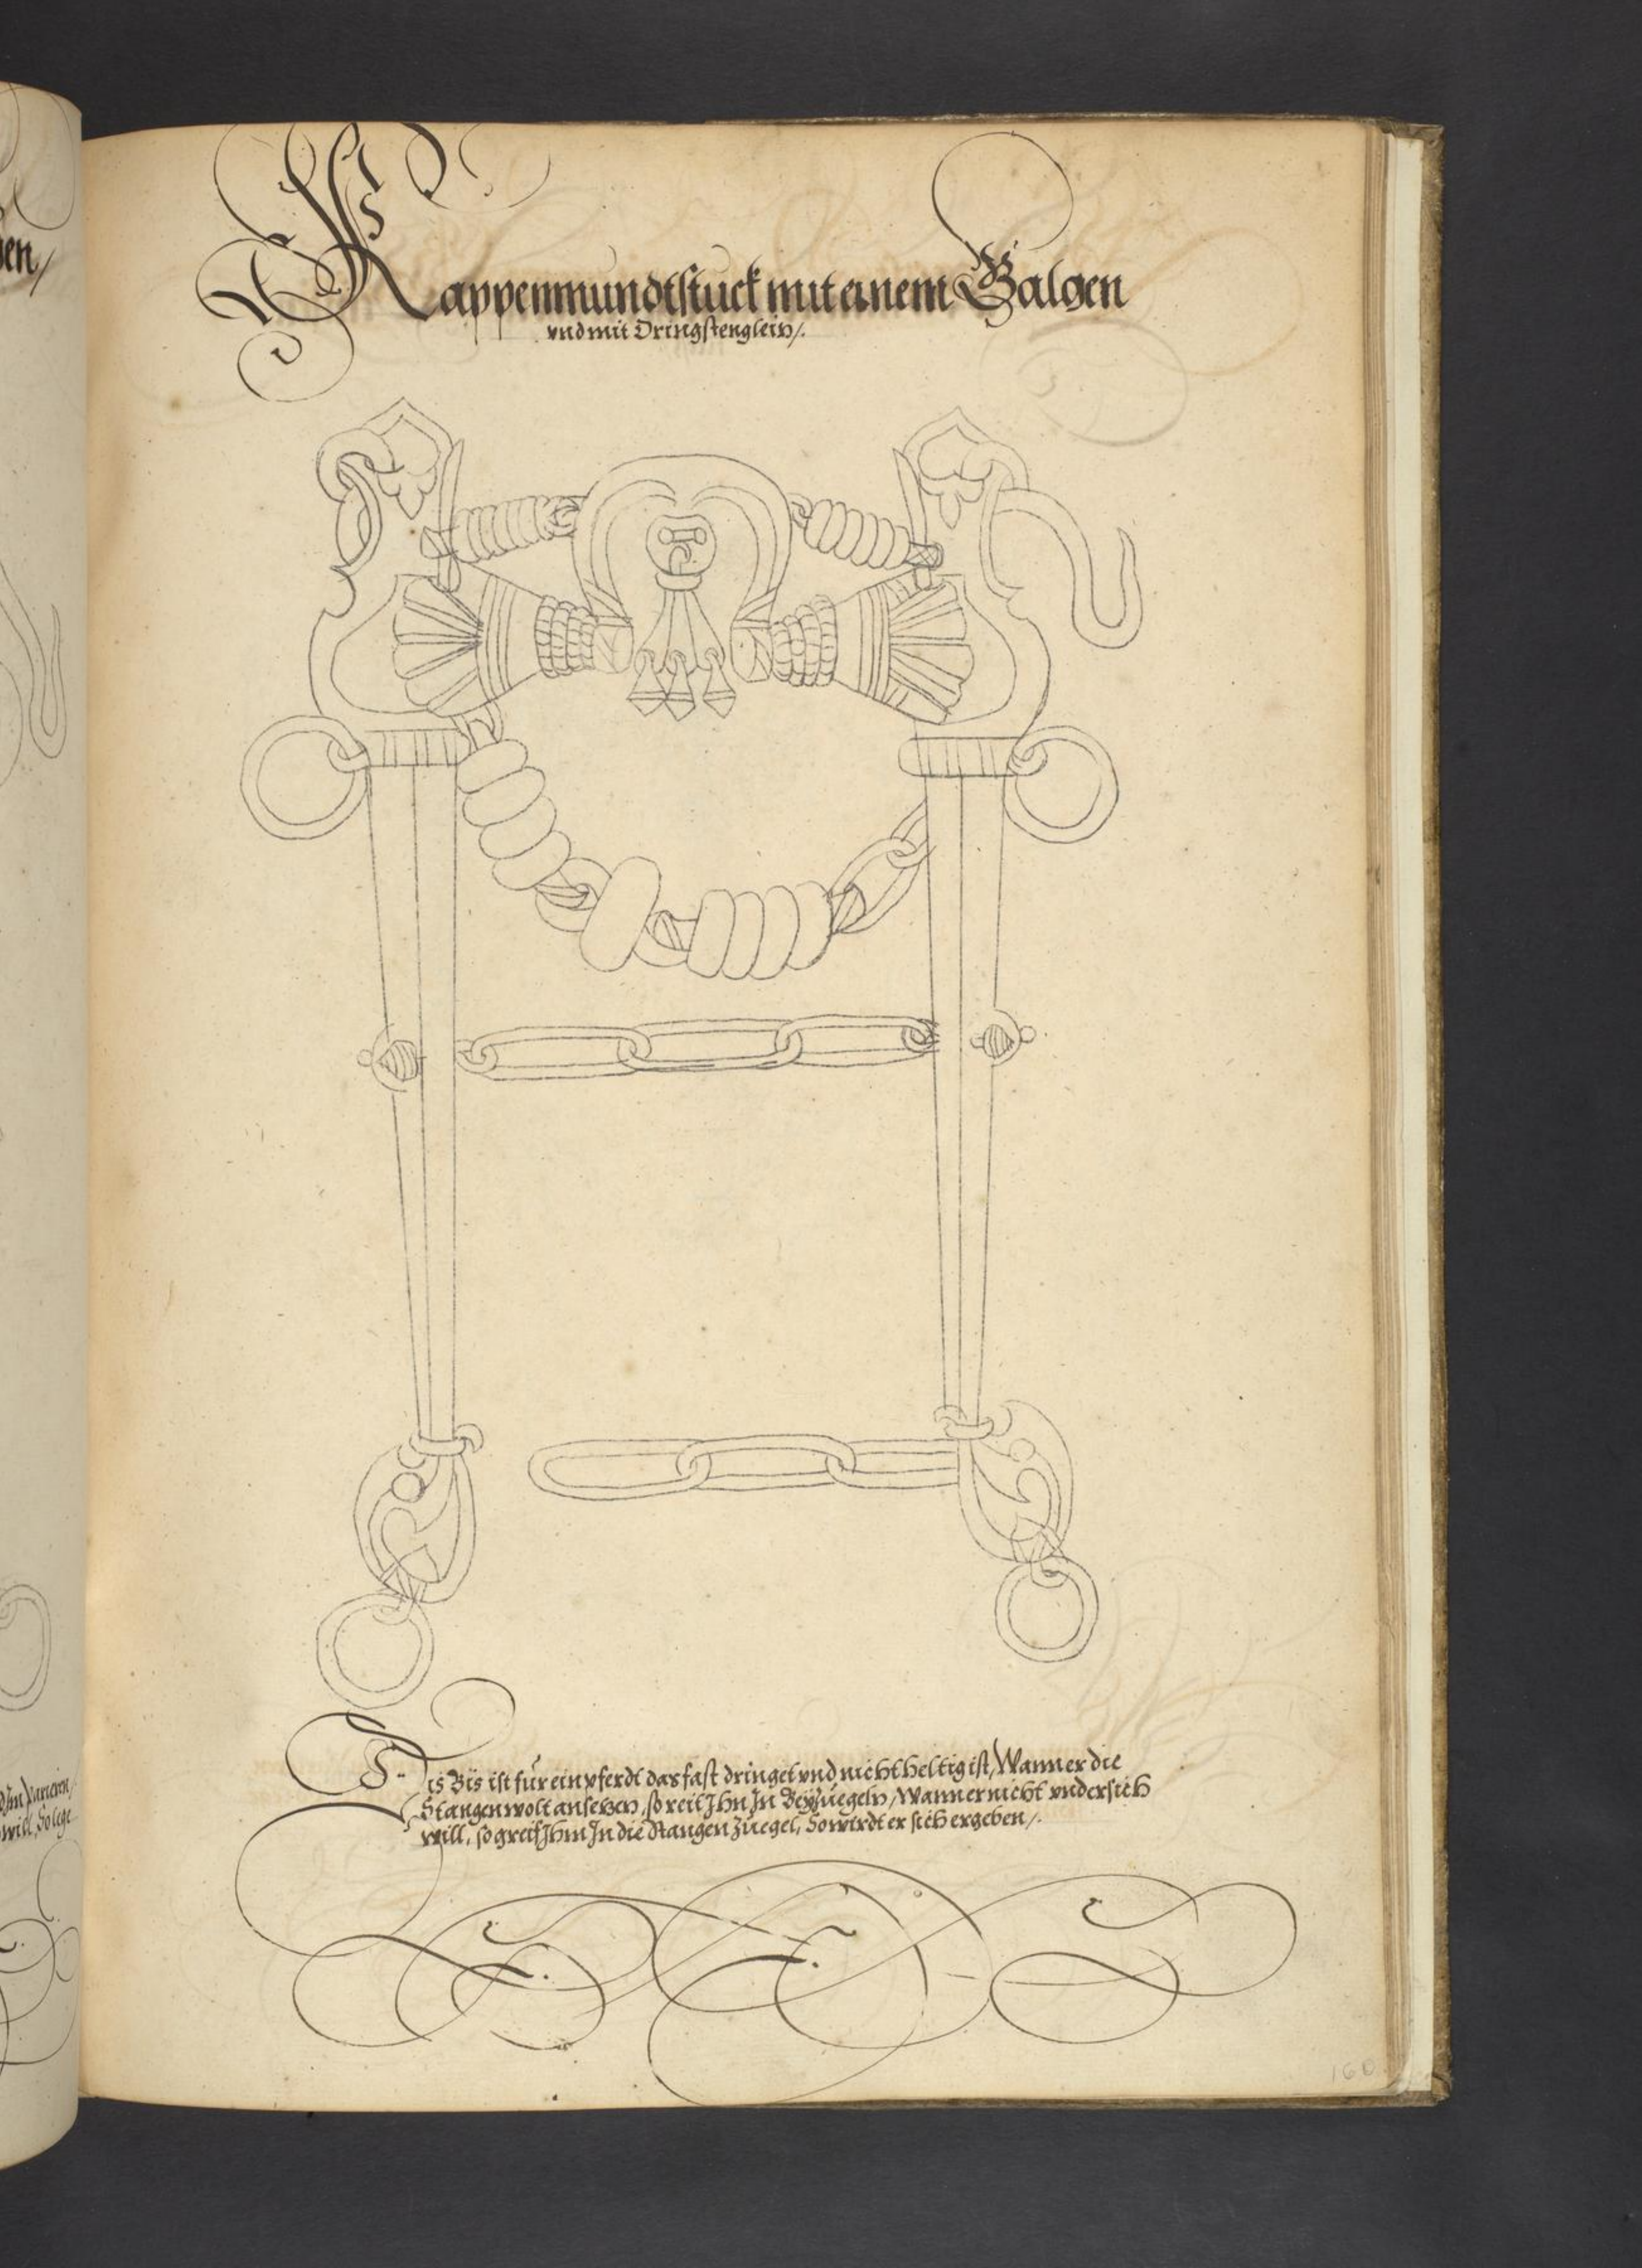 Kappenmundtstuck mit einem Galgen
vnd mit Dringstenglein/.
Dis Bis ist für ein pferdt das fast dringet vnd nicht heltig ist, Wann er die
Stangen wolt ansetzen, so reit Ihn In Beyzuegeln, Wann er nicht vndersich
will, so greif Ihm In die Stangen Zuegel, So wirdt er sich ergeben/.
en/
will, So lege
160